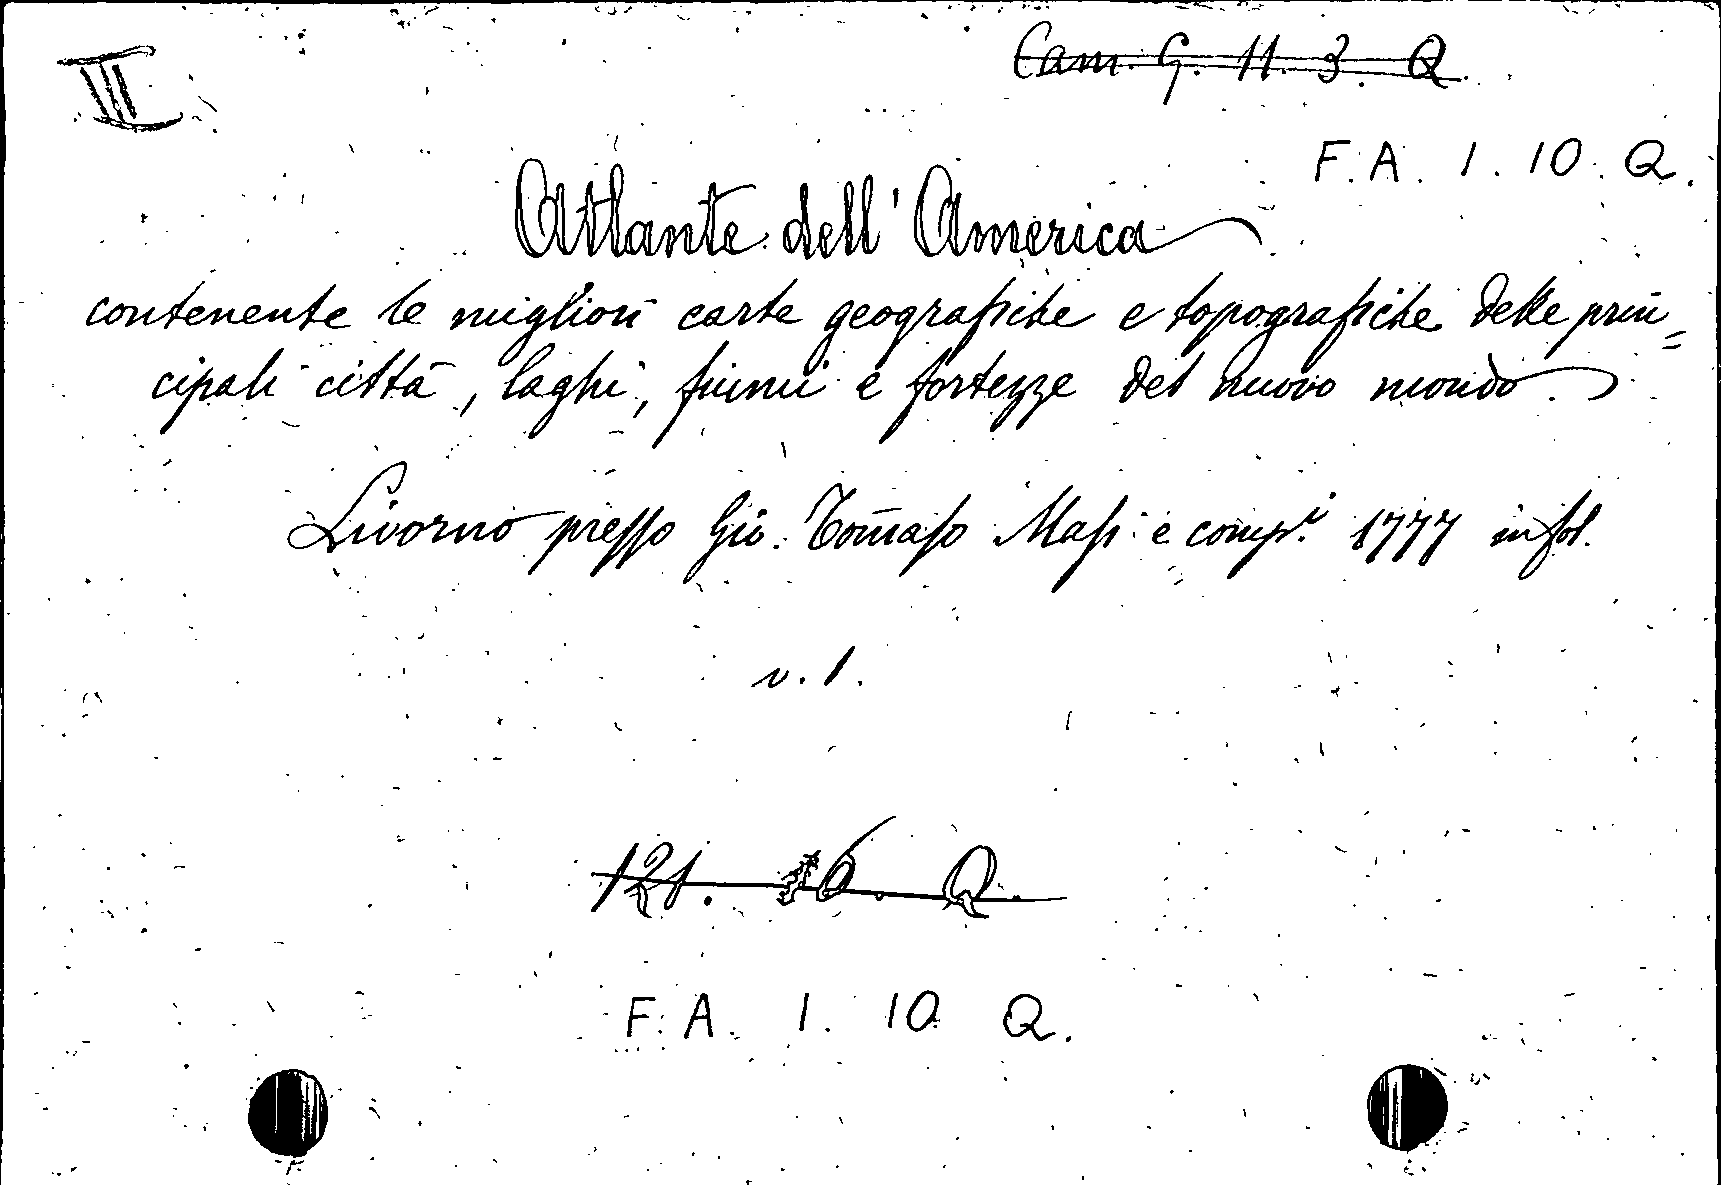 III
Cam. G. 11. 3. Q.
F. A. 1. 10. Q.
Atlante dell'America
contenente le migliori carte geografiche e topografiche delle prin=
cipali città, laghi, fiumi e fortezze del nuovo mondo.
Livorno presso Gio. Tom̄aso Masi e comp.i 1777 in fol.
v. 1.
121. 16. Q.
F. A. 1. 10 Q.